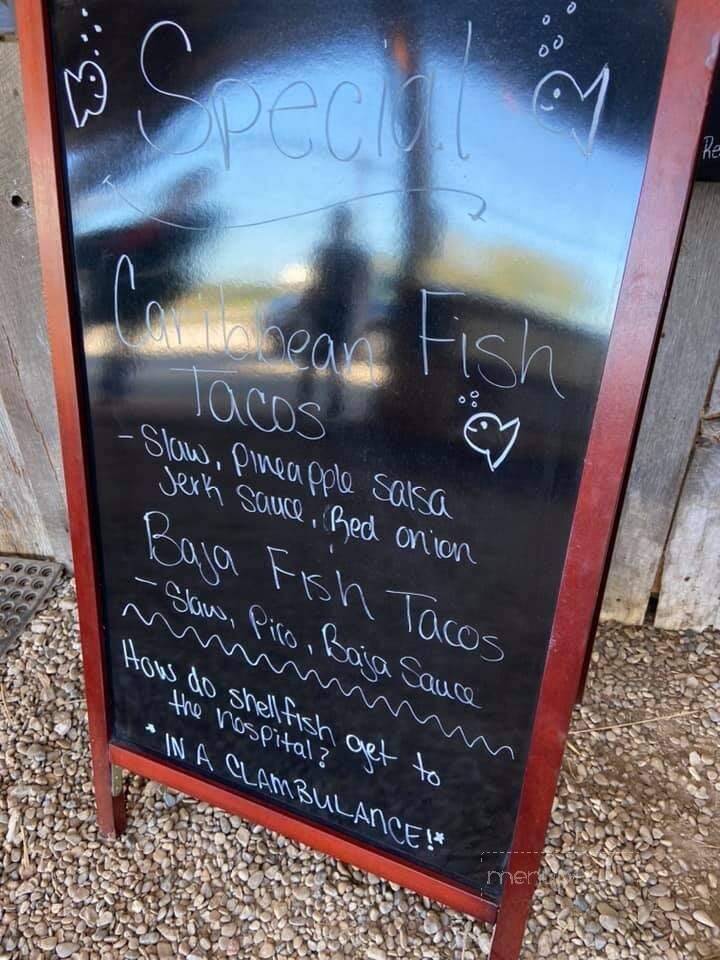 Special
Caribbean Fish
Tacos
- Slaw, pineapple salsa
Jerk Sauce, Red onion
Baja Fish Tacos
- Slaw, Pico, Baja Sauce
How do shellfish get to
the hospital?
* IN A CLAMBULANCE! *
Re